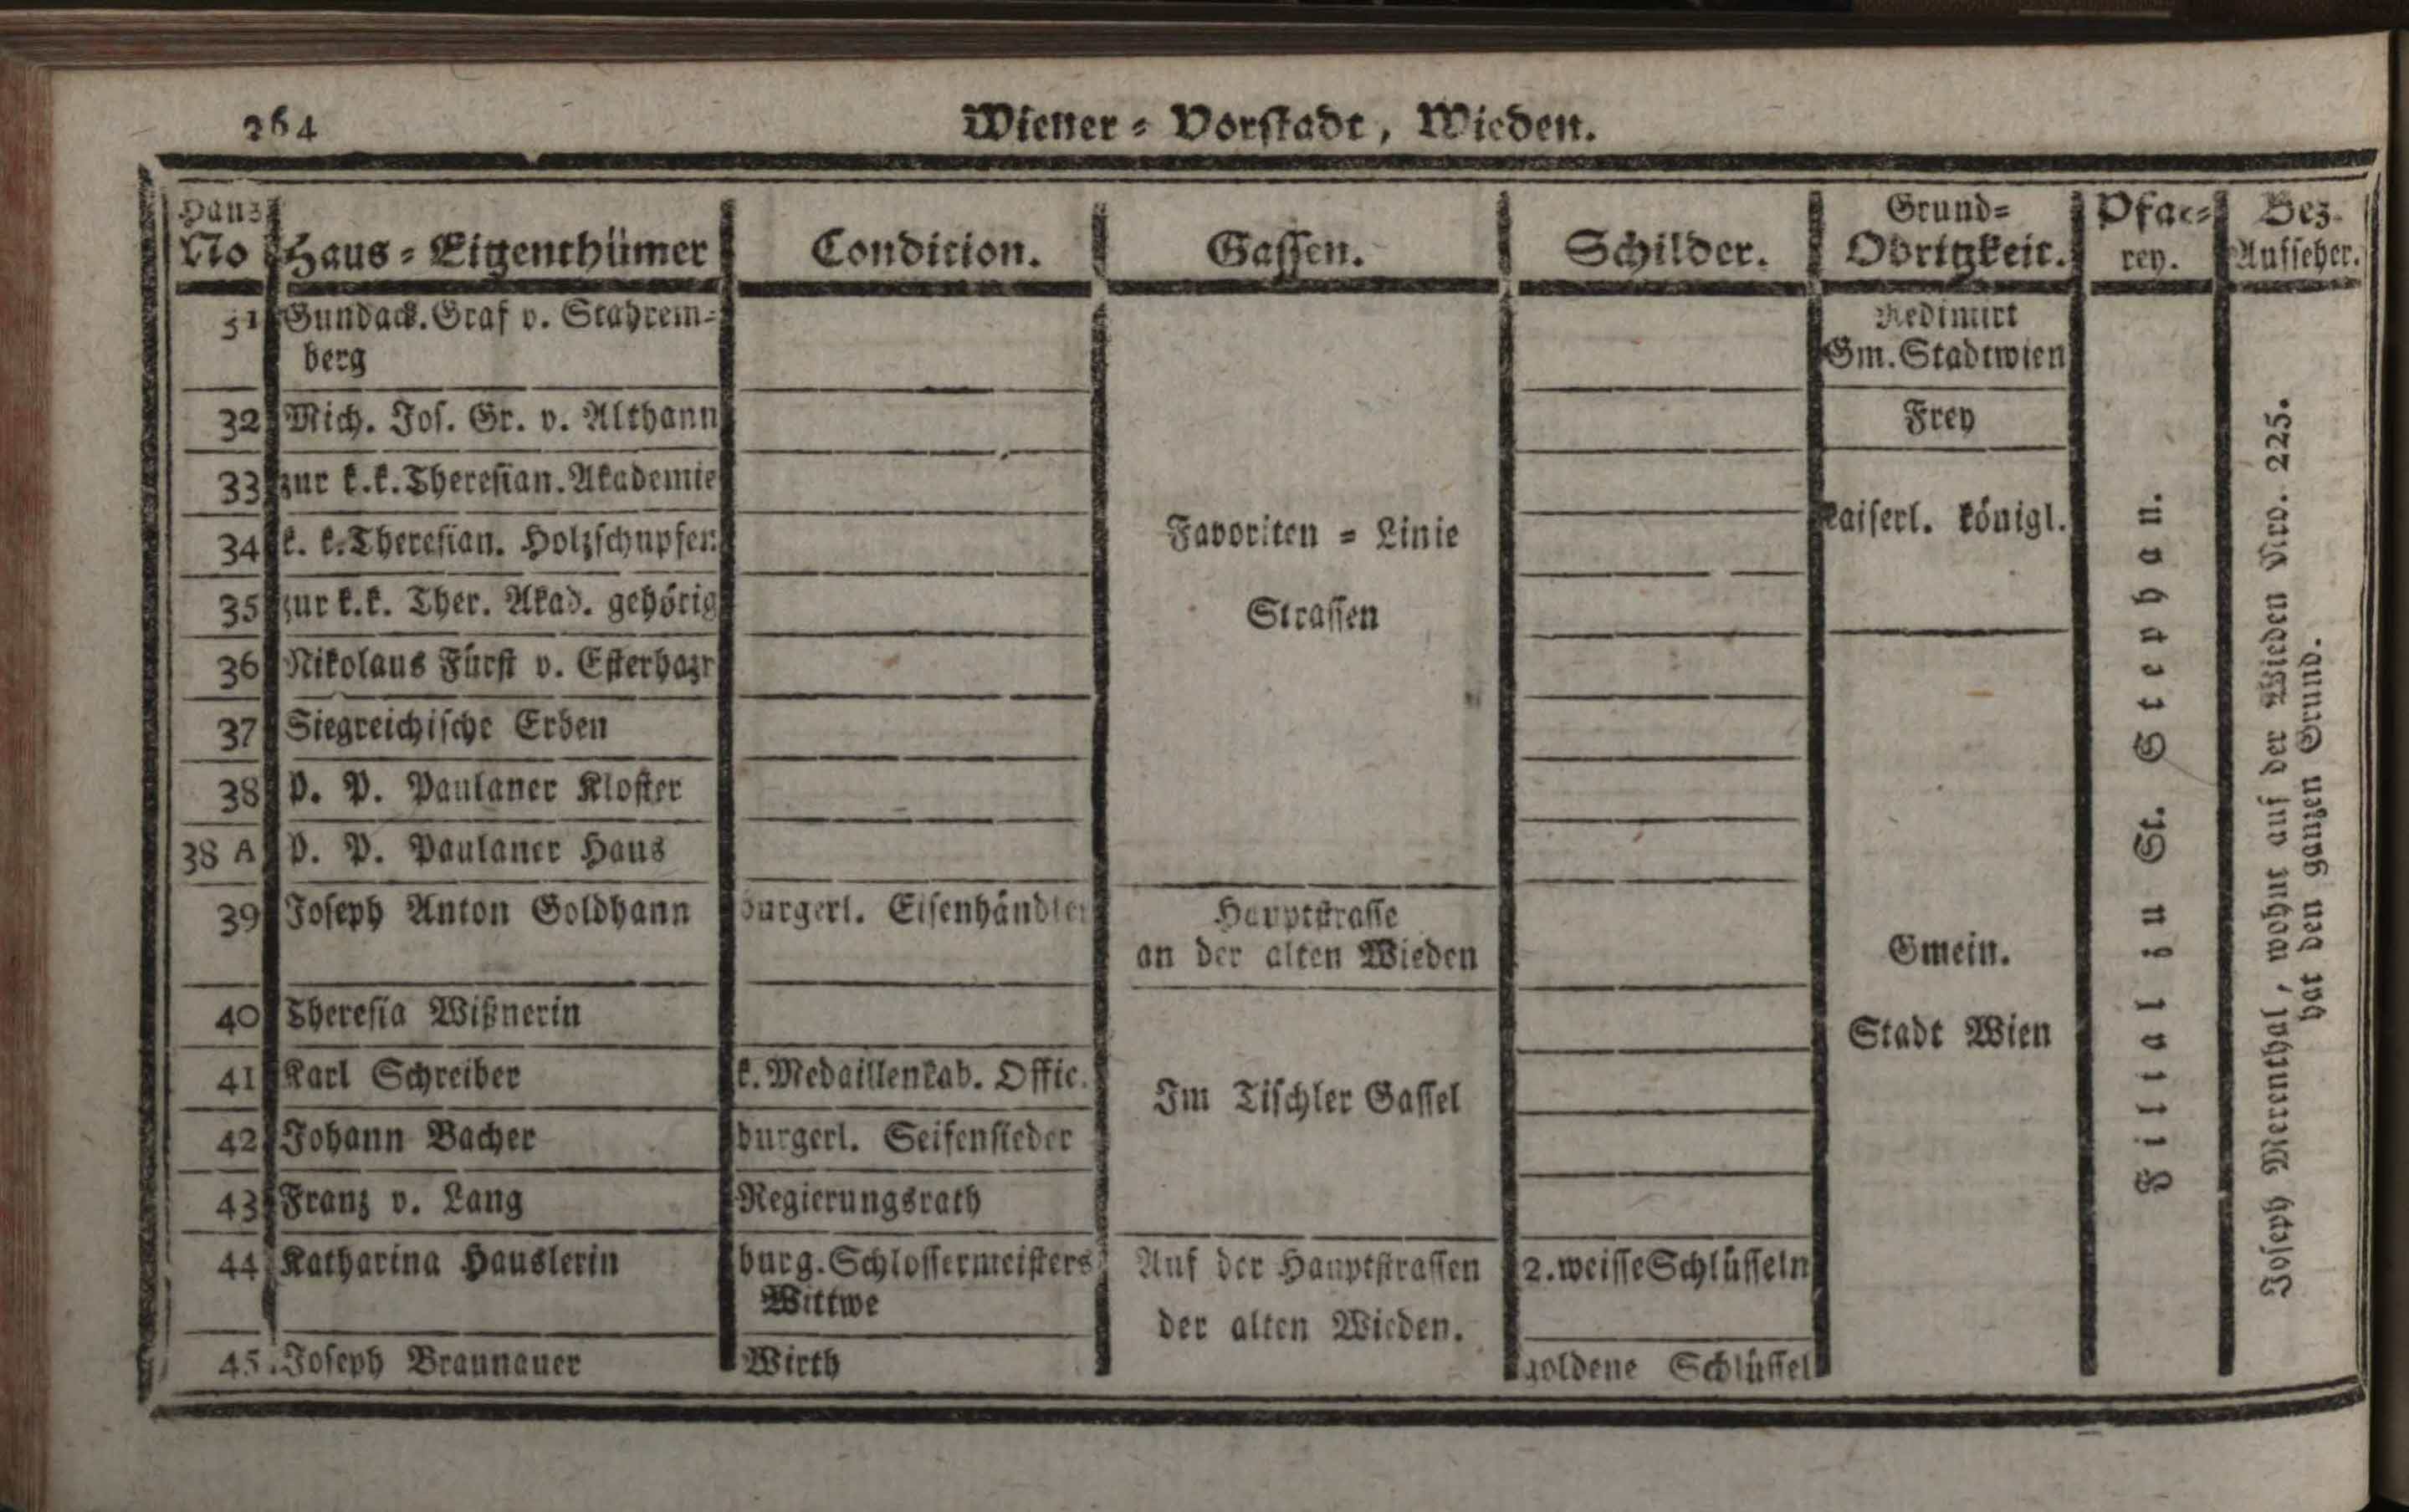 264
Wiener = Vorstadt, Wieden.
Haus
No
Haus = Eigenthümer
Condition.
Gassen.
Schilder.
Grund=
Obrigkeit.
Pfar=
rey.
Bez.
Aufseher.
31 Gundack. Graf v. Stahrem=
berg
Redimirt
Gm. Stadtwien
32 Mich. Jos. Gr. v. Althann
Frey
33 zur k.k. Theresian. Akademie
34 k. k. Theresian. Holzschupfen
35 zur k.k. Ther. Akad. gehörig
Favoriten = Linie
Strassen
kaiserl. königl.
36 Nikolaus Fürst v. Esterhazy
37 Siegreichische Erben
38 P. P. Paulaner Kloster
38 A P. P. Paulaner Haus
39 Joseph Anton Goldhann burgerl. Eisenhändler Hauptstrasse
an der alten Wieden
Gmein.
Stadt Wien
40 Theresia Wißnerin
41 Karl Schreiber k. Medaillenkab. Offic.
Im Tischler Gassel
42 Johann Bacher burgerl. Seifensieder
43 Franz v. Lang Regierungsrath
44 Katharina Hauslerin burg. Schlossermeisters Auf der Hauptstrassen 2. weisse Schlüsseln
Wittwe
der alten Wieden.
45. Joseph Braunauer Wirth goldene Schlüssel
Filial zu St. Stephan.
Joseph Merenthal, wohnt auf der Wieden Nro. 225.
hat den ganzen Grund.